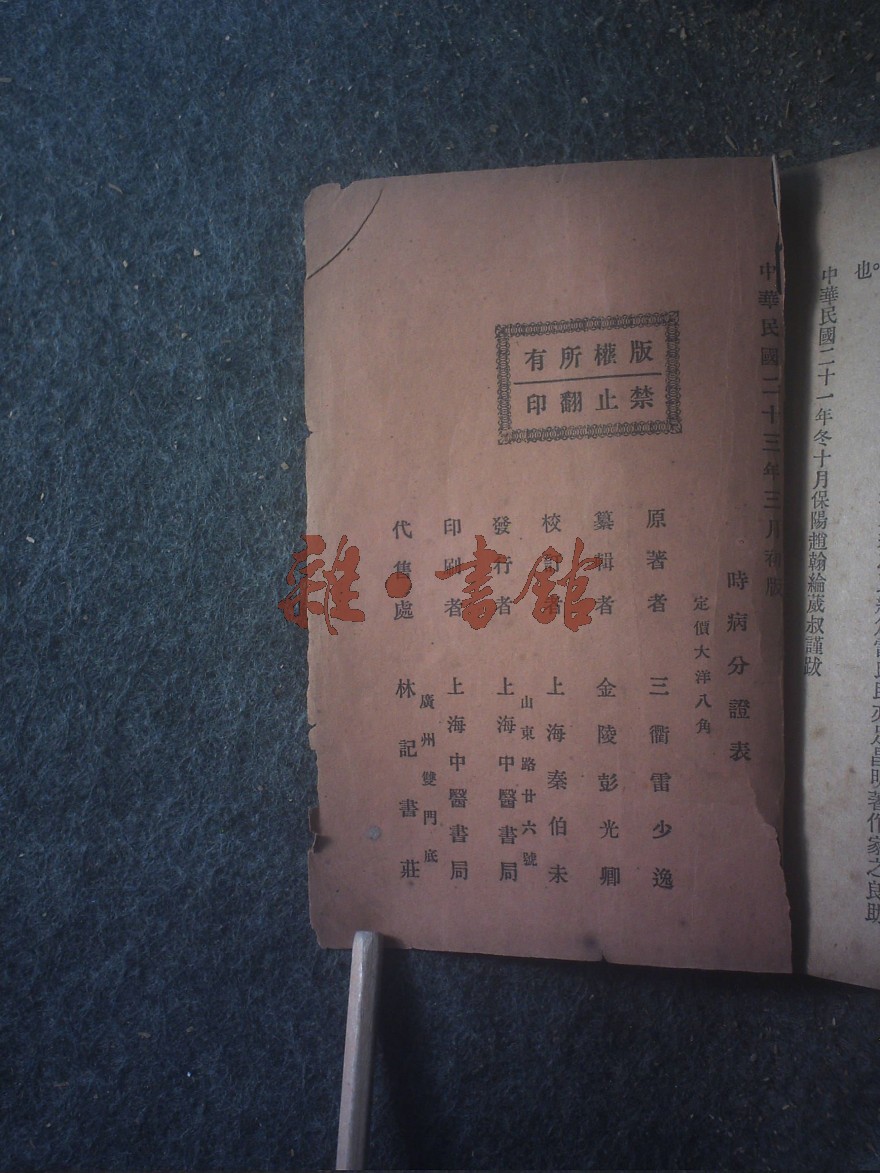 也。
中華民國二十一年冬十月保陽趙翰綸葳叔謹跋
中華民國二十三年三月初版
時病分證表
定價大洋八角
版權所有
禁止翻印
原著者 三衢雷少逸
纂輯者 金陵彭光卿
校訂者 上海秦伯未
發行者 上海中醫書局
山東路廿六號
印刷者 上海中醫書局
代售處 林記書莊
廣州雙門底
雜·書館